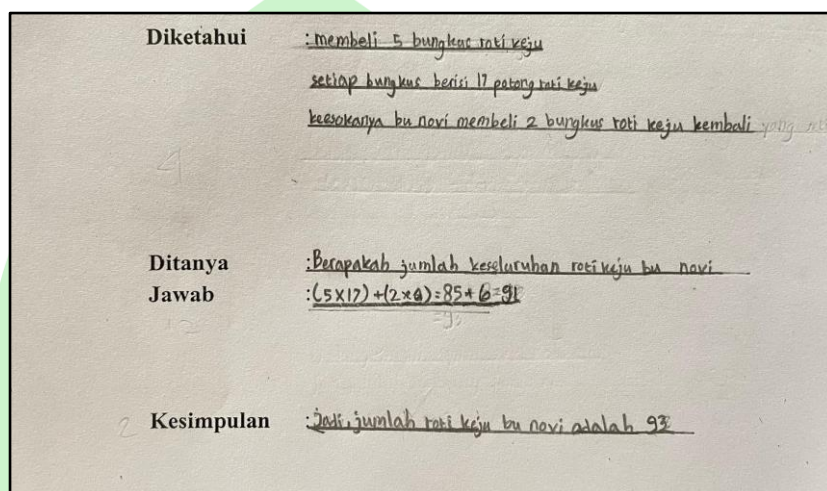 Diketahui :membeli 5 bungkus roti keju
setiap bungkus berisi 17 potong roti keju
keesokanya bu novi membeli 2 bungkus roti keju kembali yang
4
Ditanya :Berapakah jumlah keseluruhan roti keju bu novi
Jawab :(5×17)+(2×4)=85+6=91
=93
2 Kesimpulan :Jadi, jumlah roti keju bu novi adalah 93